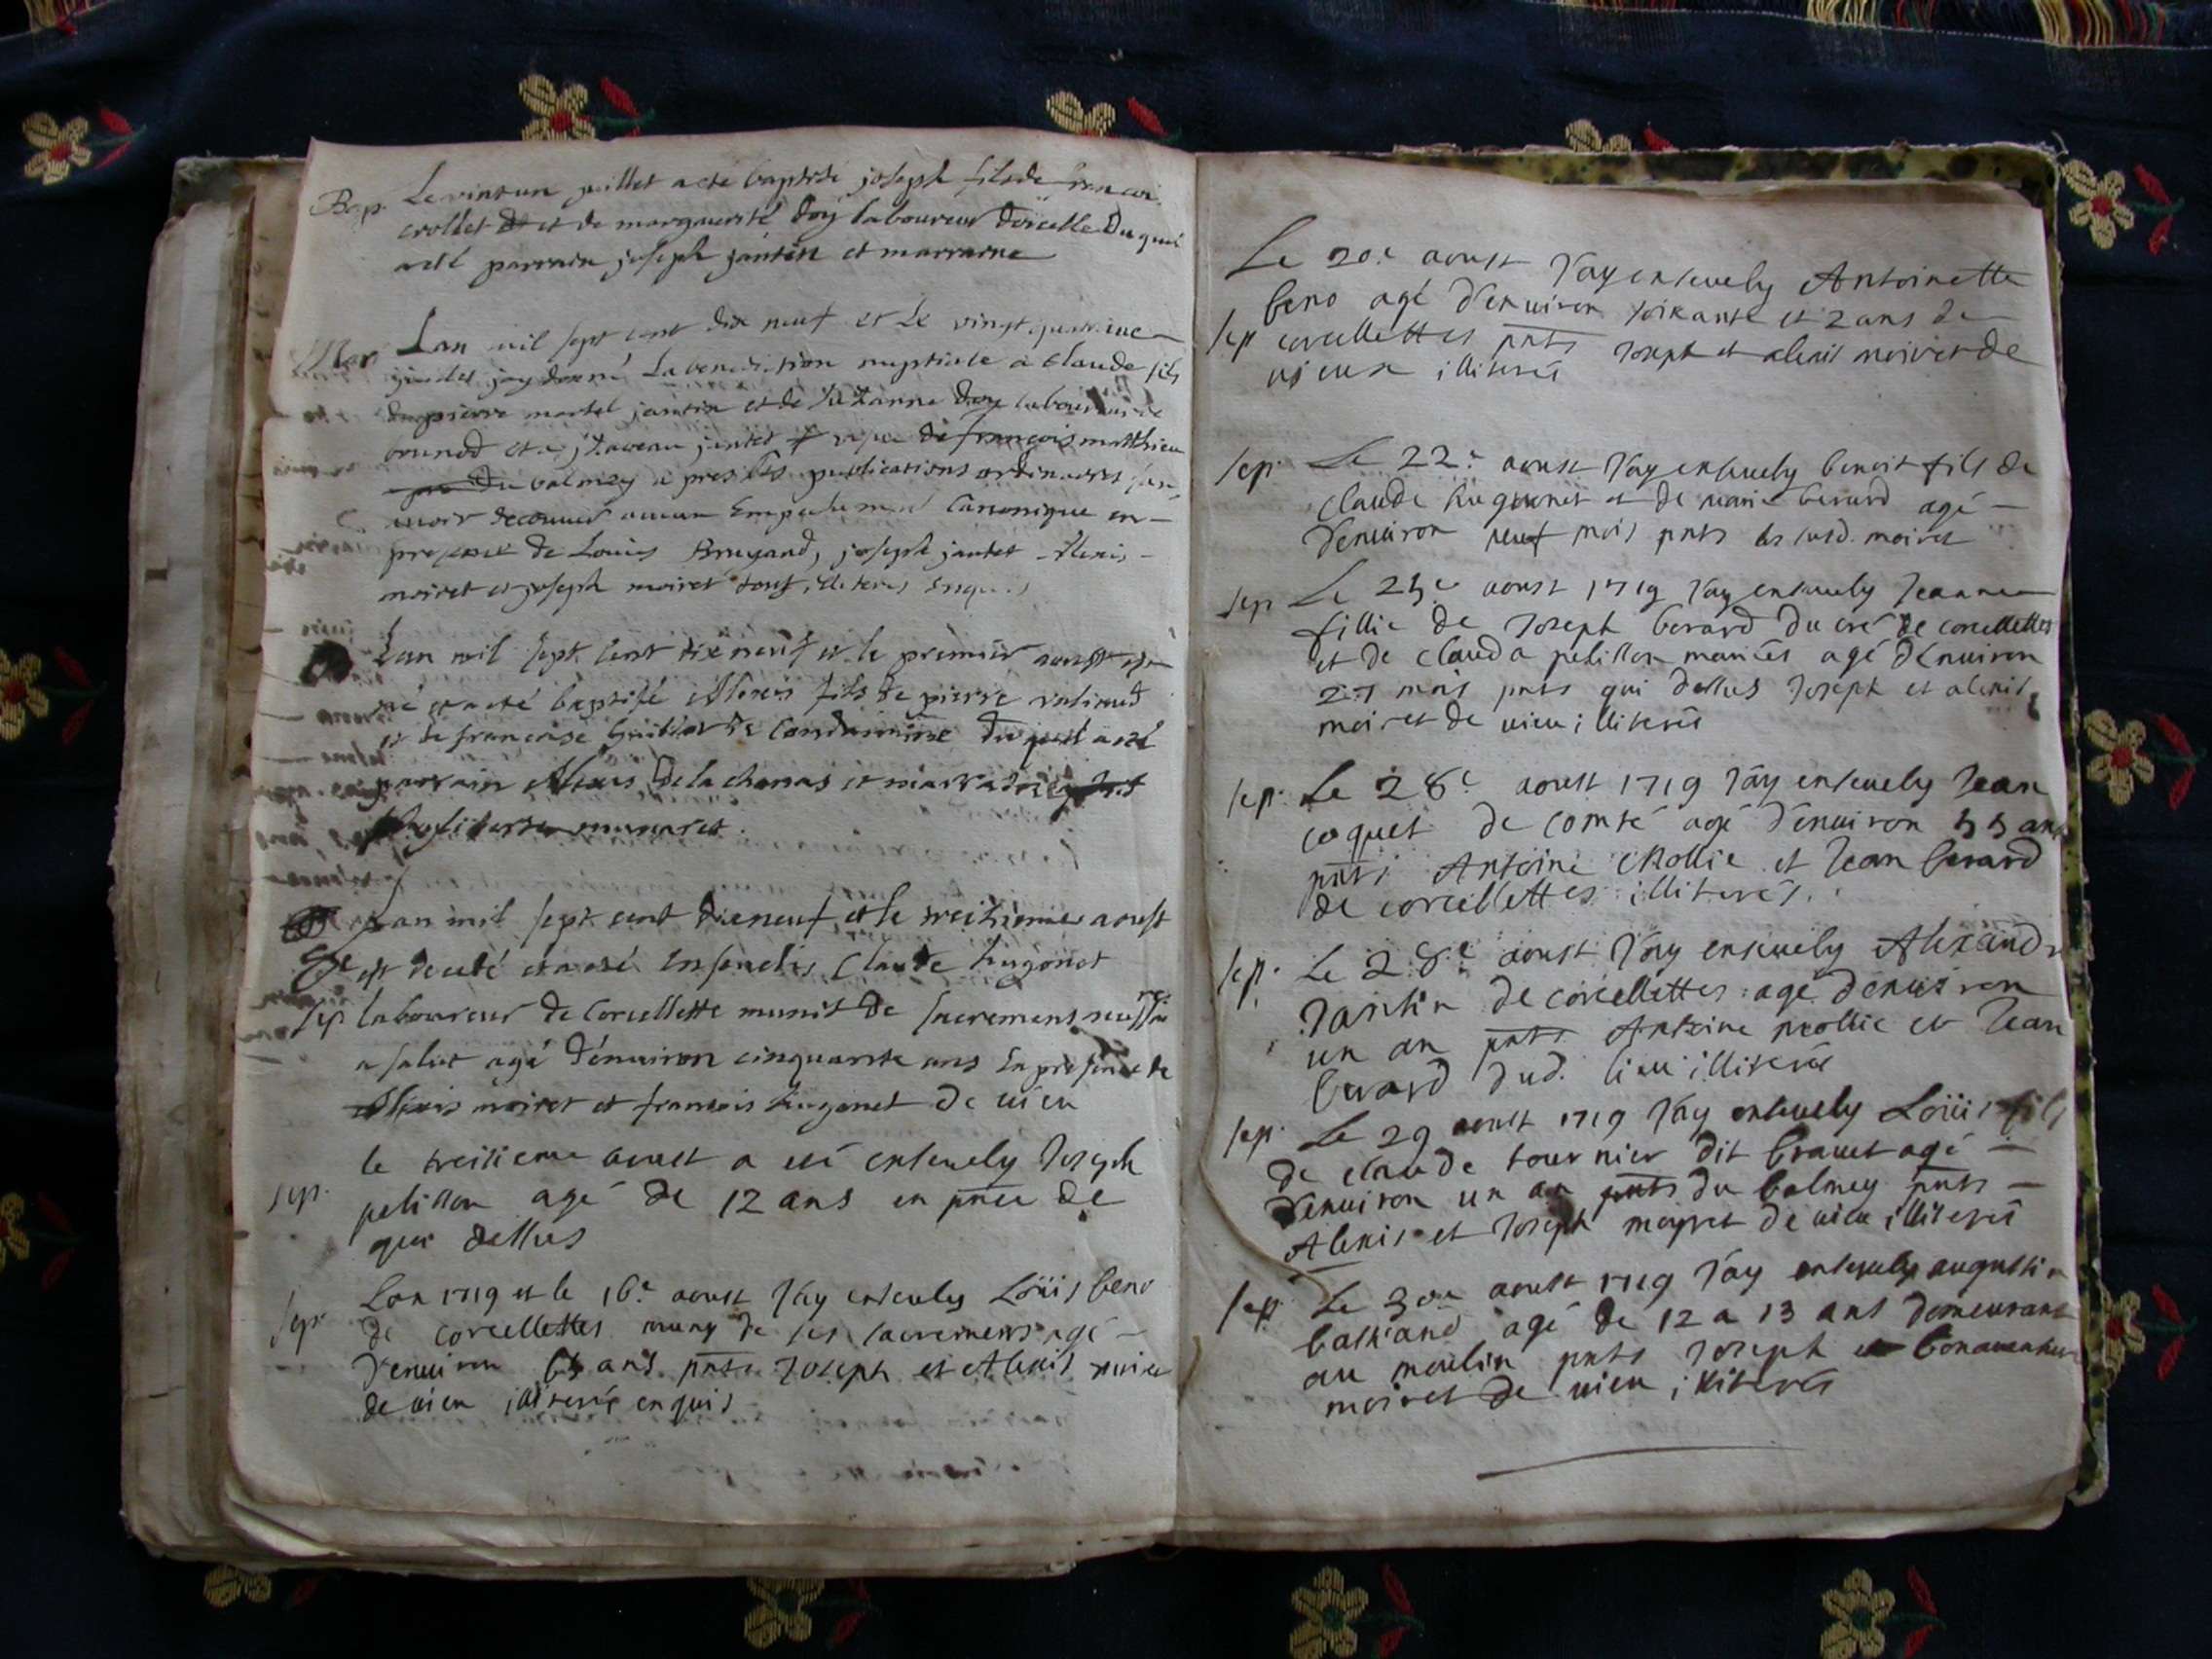 Bap. Le vint un juillet a este baptisé joseph fils de francoi
crollet et de marguerite doy laboureur dorcelle Duquel
a esté parrain joseph jantin et marraine
Mar Lan mil sept cent dix neuf et Le vingt quatrieme
juillet jay donné La benediction nuptiale a Claude fils
du pierre martel jantin et de Suzanne doy laboureur de
brunod et a jantet de françois matthieu
du balmey apres les publications ordinaires
avoir decouvert aucun Empechement Canonique en
presence de Louis Bruyand, joseph jantet Alexis
moiret et joseph moiret tous illiteres enquis
Lan mil sept cent dix neuf et le premier aoust est
né et a esté baptisé Alexis fils de pierre
et de francoise de Condamine duquel a esté
parrain Alexis de la chanas et marraine
Lan mil sept cent dix neuf et le treizieme aoust
est decedé et a esté Enseveli Claude hugonet
sep laboureur de Corcellette munit de sacremens necessaire
a salut agé d'enuiron cinquante ans En presence de
Alexis moiret et francois hugonet de vieu
le treizieme aoust a esté enseuely Joseph
sep. pelisson agé de 12 ans en pnce de
qui dessus
Lan 1719 et le 16e aoust J'ay enseuely Loüis beno
sep. de corcellettes muny de ses sacremens agé
d'enuiron 65 ans pnts Joseph et Alexis moiret
de vieu illiterés enquis
Le 20e aoust J'ay enseuely Antoinette
beno agé d'enuiron soixante et 2 ans de
sep corcellettes pnts Joseph et alexis moiret de
vieux illiterés
sep. Le 22e aoust J'ay enseuely benoit fils de
Claude hugonnet et de marie berard agé
d'enuiron neuf mois pnts les susd. moiret
sep Le 25e aoust 1719 J'ay enseuely Jeanne
fillie de Joseph berard du cré de corcellettes
et de clauda pelisson mariés agé d'enuiron
27 mois pnts qui dessus Joseph et alexis
moiret de vieu illiterés
sep. Le 28e aoust 1719 J'ay enseuely Jean
coquet de comté agé d'enuiron 55 ans
pnts Antoine Mollie et Jean berard
de corcellettes illiterés.
sep. Le 28e aoust J'ay enseuely Alexandre
Jantin de corcellettes agé d'enuiron
un an pnts Antoine mollie et Jean
berard dud. lieu illiterés
sep. Le 29 aoust 1719 J'ay enseuely Loüis fils
de claude tournier dit brauet agé
d'enuiron un an pnts du balmey pnts
Alexis et Joseph moyret de vieu illiterés
sep. Le 30e aoust 1719 J'ay enseuely augustin
agé de 12 a 13 ans demeurant
au moulin pnts Joseph et bonauenture
moiret de vieu illiterés